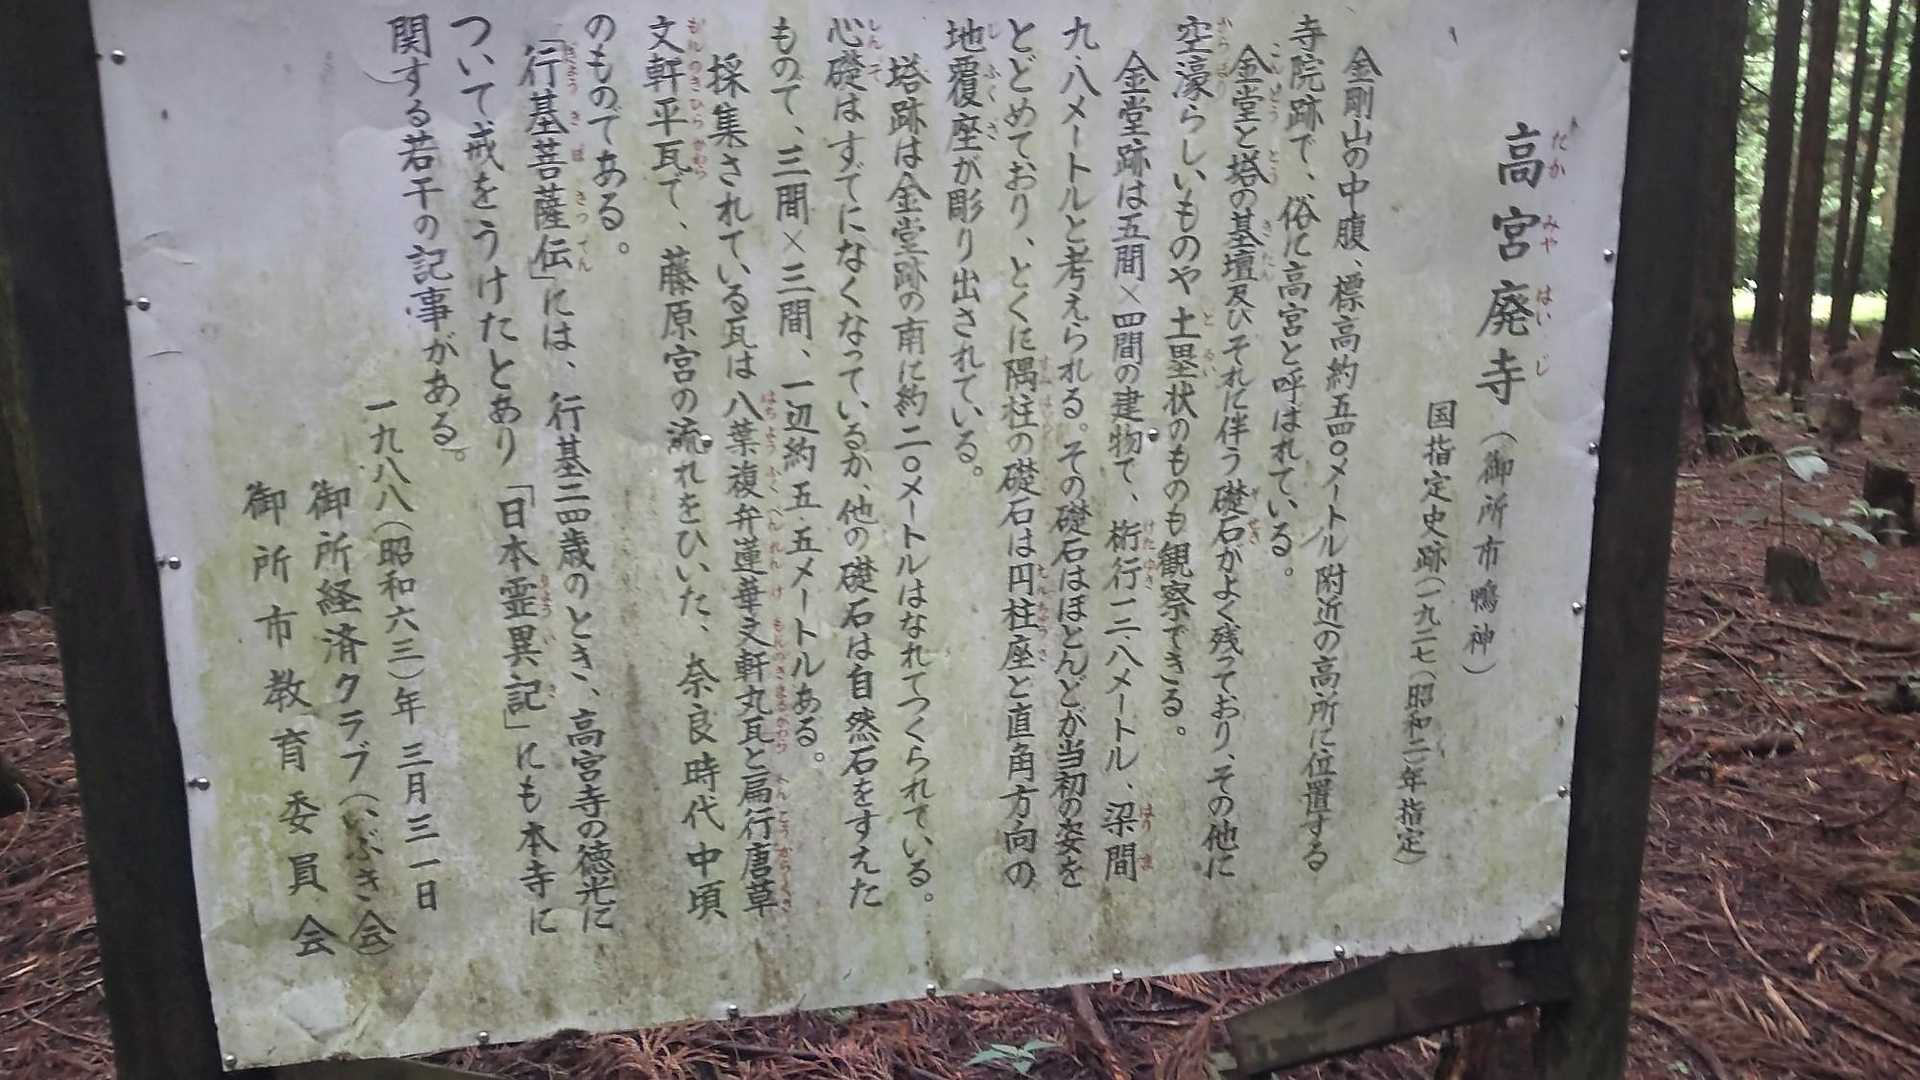 高宮廃寺(御所市鴨神)
国指定史跡(一九二七(昭和二)年指定)
金剛山の中腹、標高約五四〇メートル附近の高所に位置する
寺院跡で、俗に高宮と呼ばれている。
金堂と塔の基壇及びそれに伴う礎石がよく残っており、その他に
空濠らしいものや土塁状のものも観察できる。
金堂跡は五間×四間の建物で、桁行一三・八メートル、梁間
九・八メートルと考えられる。その礎石はほとんどが当初の姿を
とどめており、とくに隅柱の礎石は円柱座と直角方向の
地覆座が彫り出されている。
塔跡は金堂跡の南に約二〇メートルはなれてつくられている。
心礎はすでになくなっているが、他の礎石は自然石をすえた
もので、三間×三間、一辺約五・五メートルある。
採集されている瓦は八葉複弁蓮華文軒丸瓦と扁行唐草
文軒平瓦で、藤原宮の流れをひいた、奈良時代中頃
のものである。
「行基菩薩伝」には、行基三四歳のとき、高宮寺の徳光に
ついて戒をうけたとあり「日本霊異記」にも本寺に
関する若干の記事がある。
一九八八(昭和六三)年三月三一日
御所経済クラブ(いぶき会)
御所市教育委員会